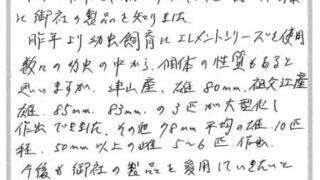 に御社の製品を知りました
昨年より幼虫飼育にエレメントシリーズを使用
数々の幼虫の中から、個体の性質もあると
思いますが、津山産、雄 80mm、祖父江産
雄、85mm、83mm の3匹が大型化し
作出できました、その他78mm平均の雄、10匹
程、50mm以上の雌 5〜6匹 作出
今後も御社の製品を愛用していきたいと